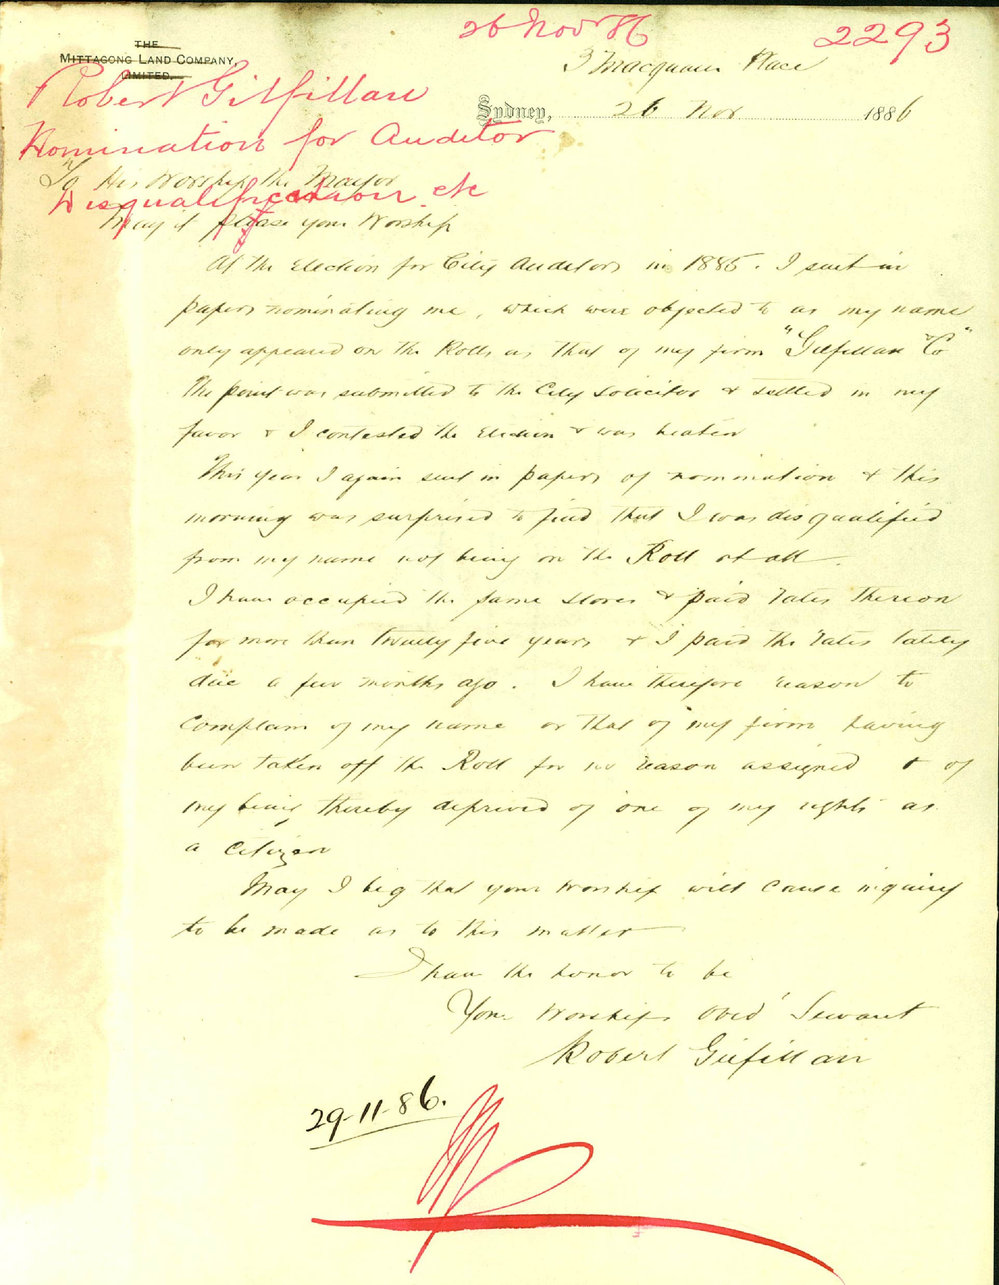 26 Nov 86
2293
THE
MITTAGONG LAND COMPANY,
LIMITED.
3 Macquarie Place
Sydney, 26 Nov 1886
Robert Gilfillan
Nomination for Auditor
Disqualification etc
To His Worship the Mayor
May it please your Worship
At the Election for City Auditors in 1885. I sent in
papers nominating me, which were objected to as my name
only appeared on the Rolls as that of my firm "Gilfillan & Co"
The point was submitted to the City Solicitor & settled in my
favor & I contested the Election & was beaten
This year I again sent in papers of nomination & this
morning was surprised to find that I was disqualified
from my name not being on the Roll at all.
I have occupied the same stores & paid rates thereon
for more than twenty five years & I paid the rates lately
due a few months ago. I have therefore reason to
complain of my name or that of my firm having
been taken off the Roll for no reason assigned & of
my being thereby deprived of one of my rights as
a Citizen
May I beg that your Worship will cause inquiry
to be made as to this matter
I have the honor to be
Your Worships Obed' Servant
Robert Gilfillan
29-11-86.